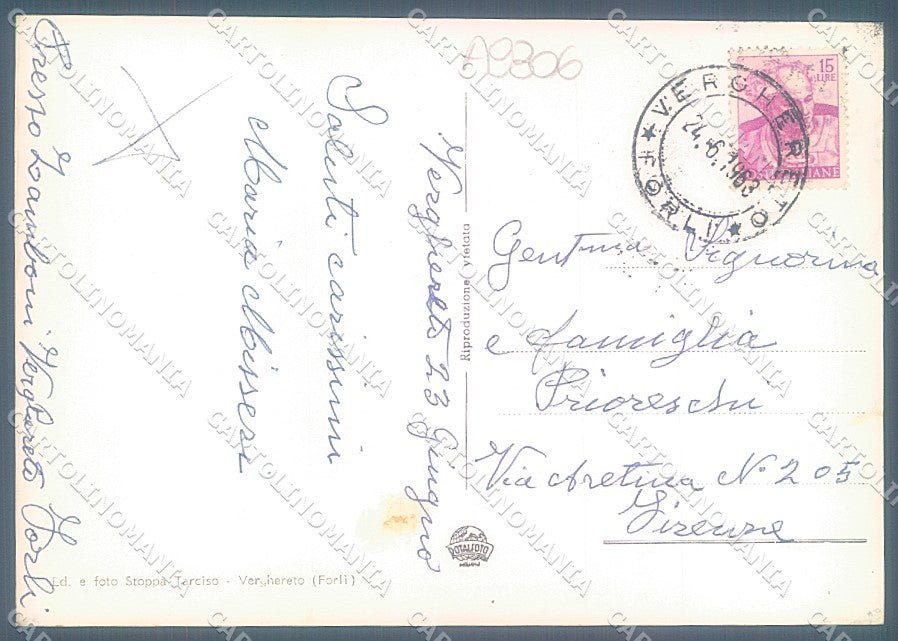 A9306
15
LIRE
POSTE ITALIANE
VERGHERETO
24.6.1963
★ FORLI' ★
Presso Zamboni Verghereto Forlì
Saluti carissimi
Maria
Verghereto 23 Giugno
Riproduzione vietata
Gentma Signorina
e famiglia
Prioreschi
Via Aretina N° 205
Firenze
ROTALFOTO
MILANO
Ed. e foto Stoppa Tarciso - Verghereto (Forlì)
CARTOLINOMANIA